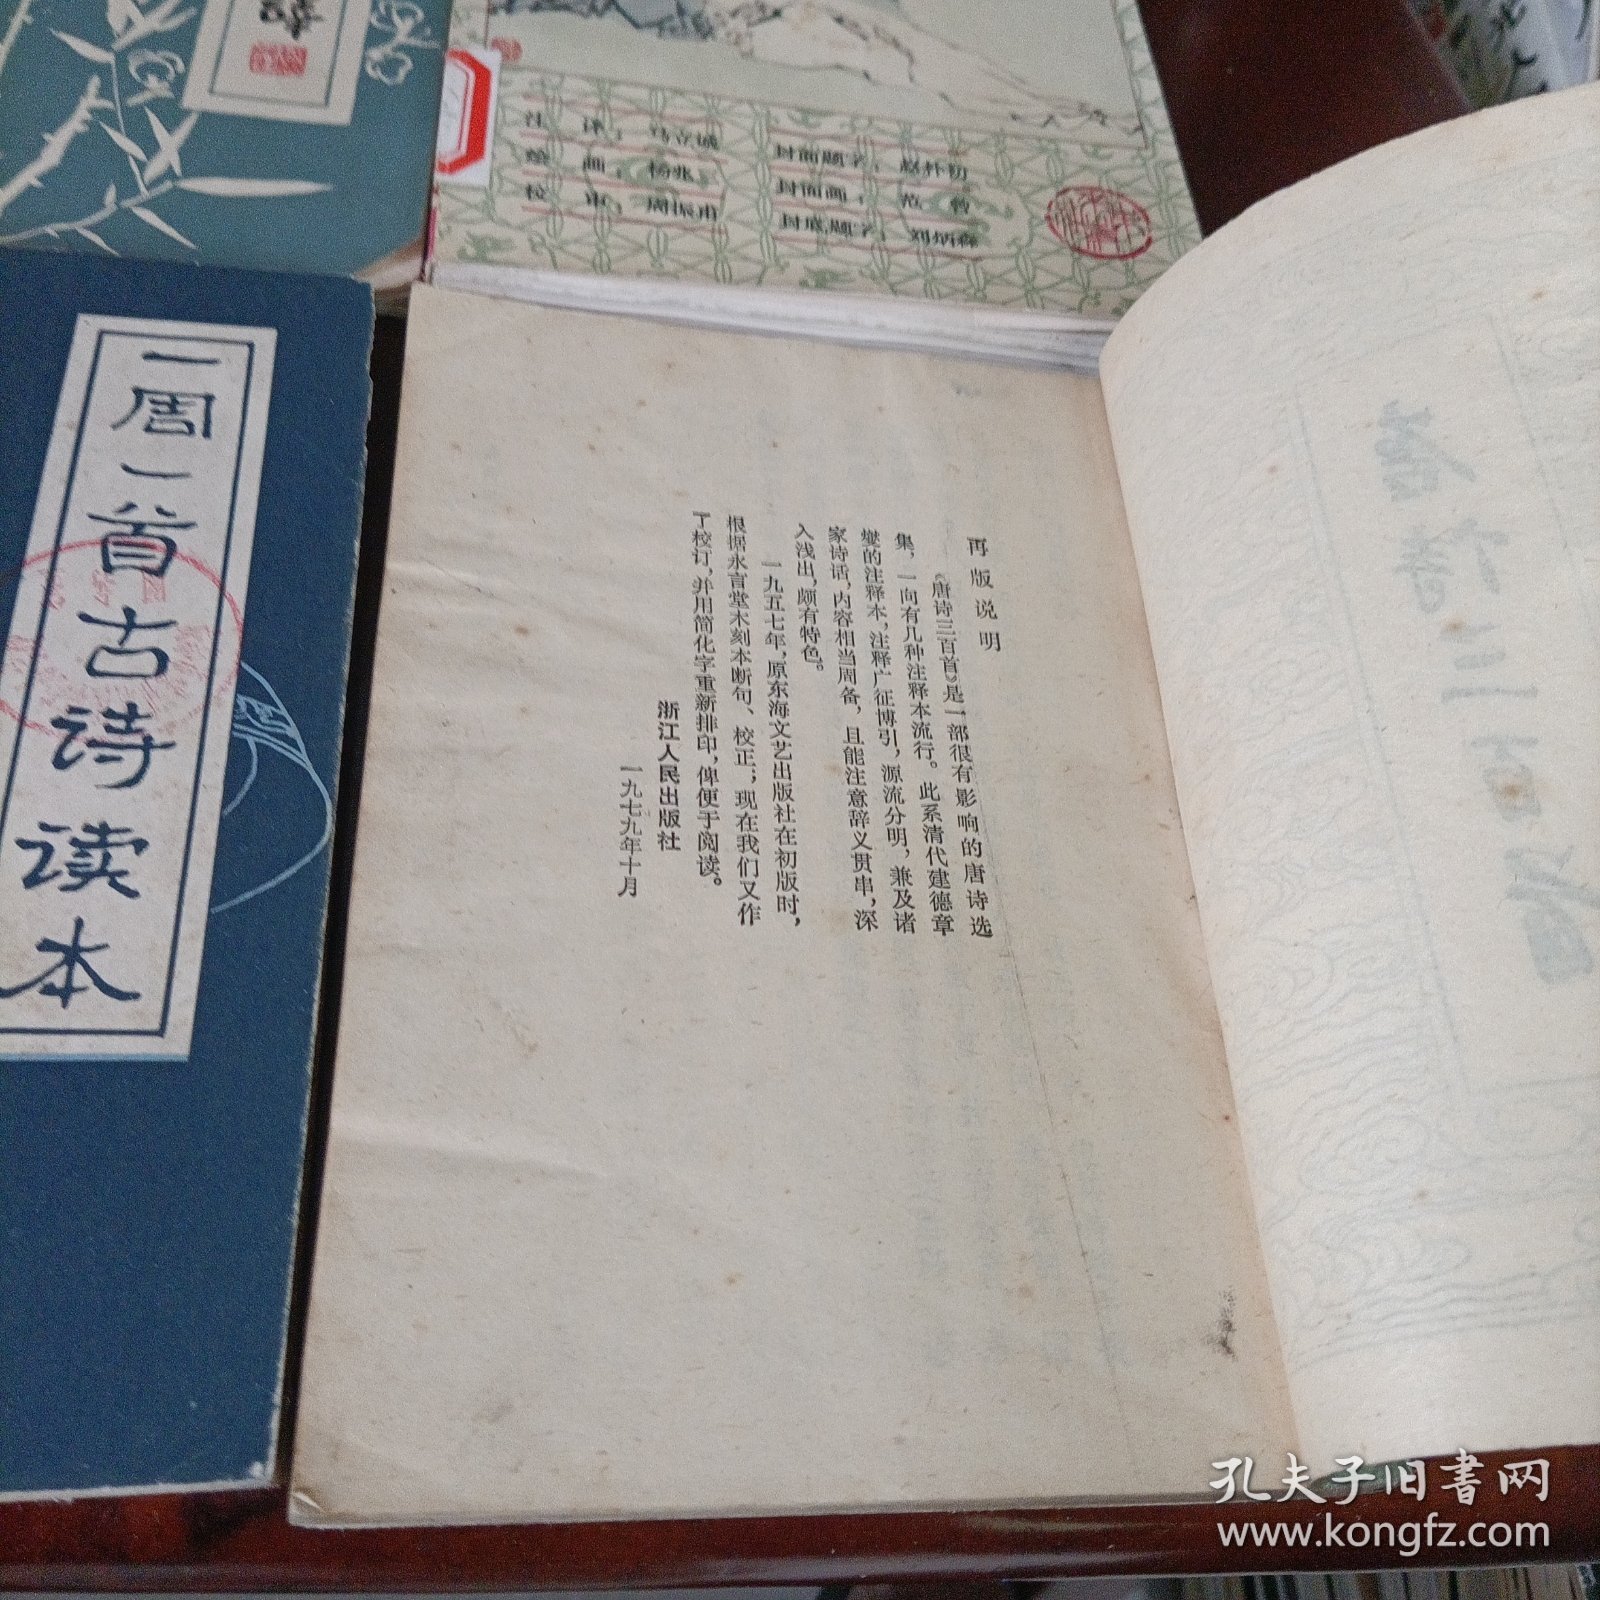 再版说明
《唐诗三百首》是一部很有影响的唐诗选
集，一向有几种注释本流行。此系清代建德章
燮的注释本，注释广征博引，源流分明，兼及诸
家诗话，内容相当周备，且能注意辞义贯串，深
入浅出，颇有特色。
一九五七年，原东海文艺出版社在初版时，
根据永言堂木刻本断句、校正；现在我们又作
了校订，并用简化字重新排印，俾便于阅读。
浙江人民出版社
一九七九年十月
一周一首古诗读本
注 译：马立诚
绘 画：杨兆
校 审：周振甫
封面题字：赵朴初
封面画：范曾
封底题字：刘炳森
孔夫子旧书网
www.kongfz.com